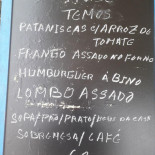 TEMOS
PATANISCAS C/ARROZ DE
TOMATE
FRANGO ASSADO NO FORNO
HUMBURGUER À BINO
LOMBO ASSADO
SOPA/PÃO/PRATO/ DA CASA
SOBREMESA/CAFÉ